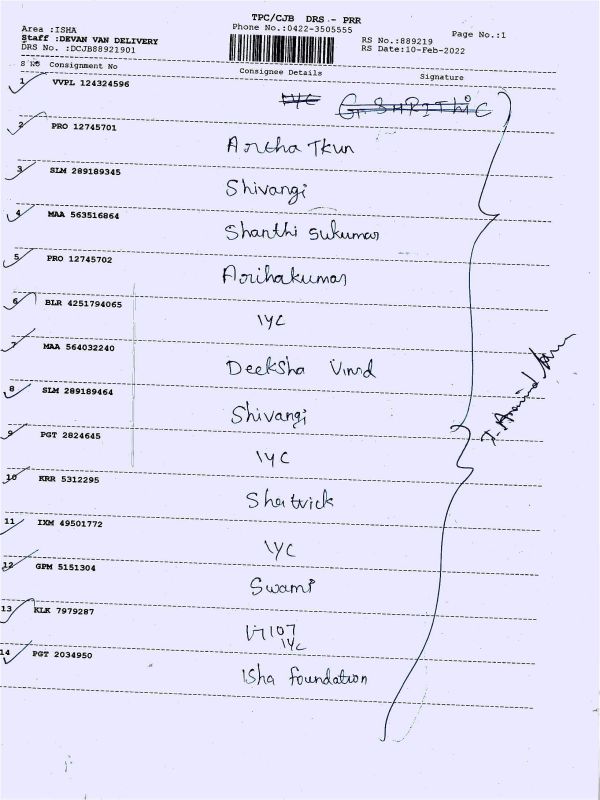 TPC/CJB DRS - PRR
Area :ISHA Phone No.:0422-3505555 Page No.:1
Staff :DEVAN VAN DELIVERY RS No.:889219
DRS No. :DCJB88921901 RS Date:10-Feb-2022
S NO Consignment No Consignee Details Signature
1 VVPL 124324596
IYC G. SHRITHIC
2 PRO 12745701
Artha
3 SLM 289189345
Shivangi
4 MAA 563516864
Shanthi Sukumar
5 PRO 12745702
Arihakumar
6 BLR 4251794065
IYC
7 MAA 564032240
Deeksha Vinod
8 SLM 289189464
Shivangi
9 PGT 2824645
IYC
T. Aravind
10 KRR 5312295
Shatvick
11 IXM 49501772
IYC
12 GPM 5151304
Swami
13 KLK 7979287
IYC
14 PGT 2034950
Isha Foundation